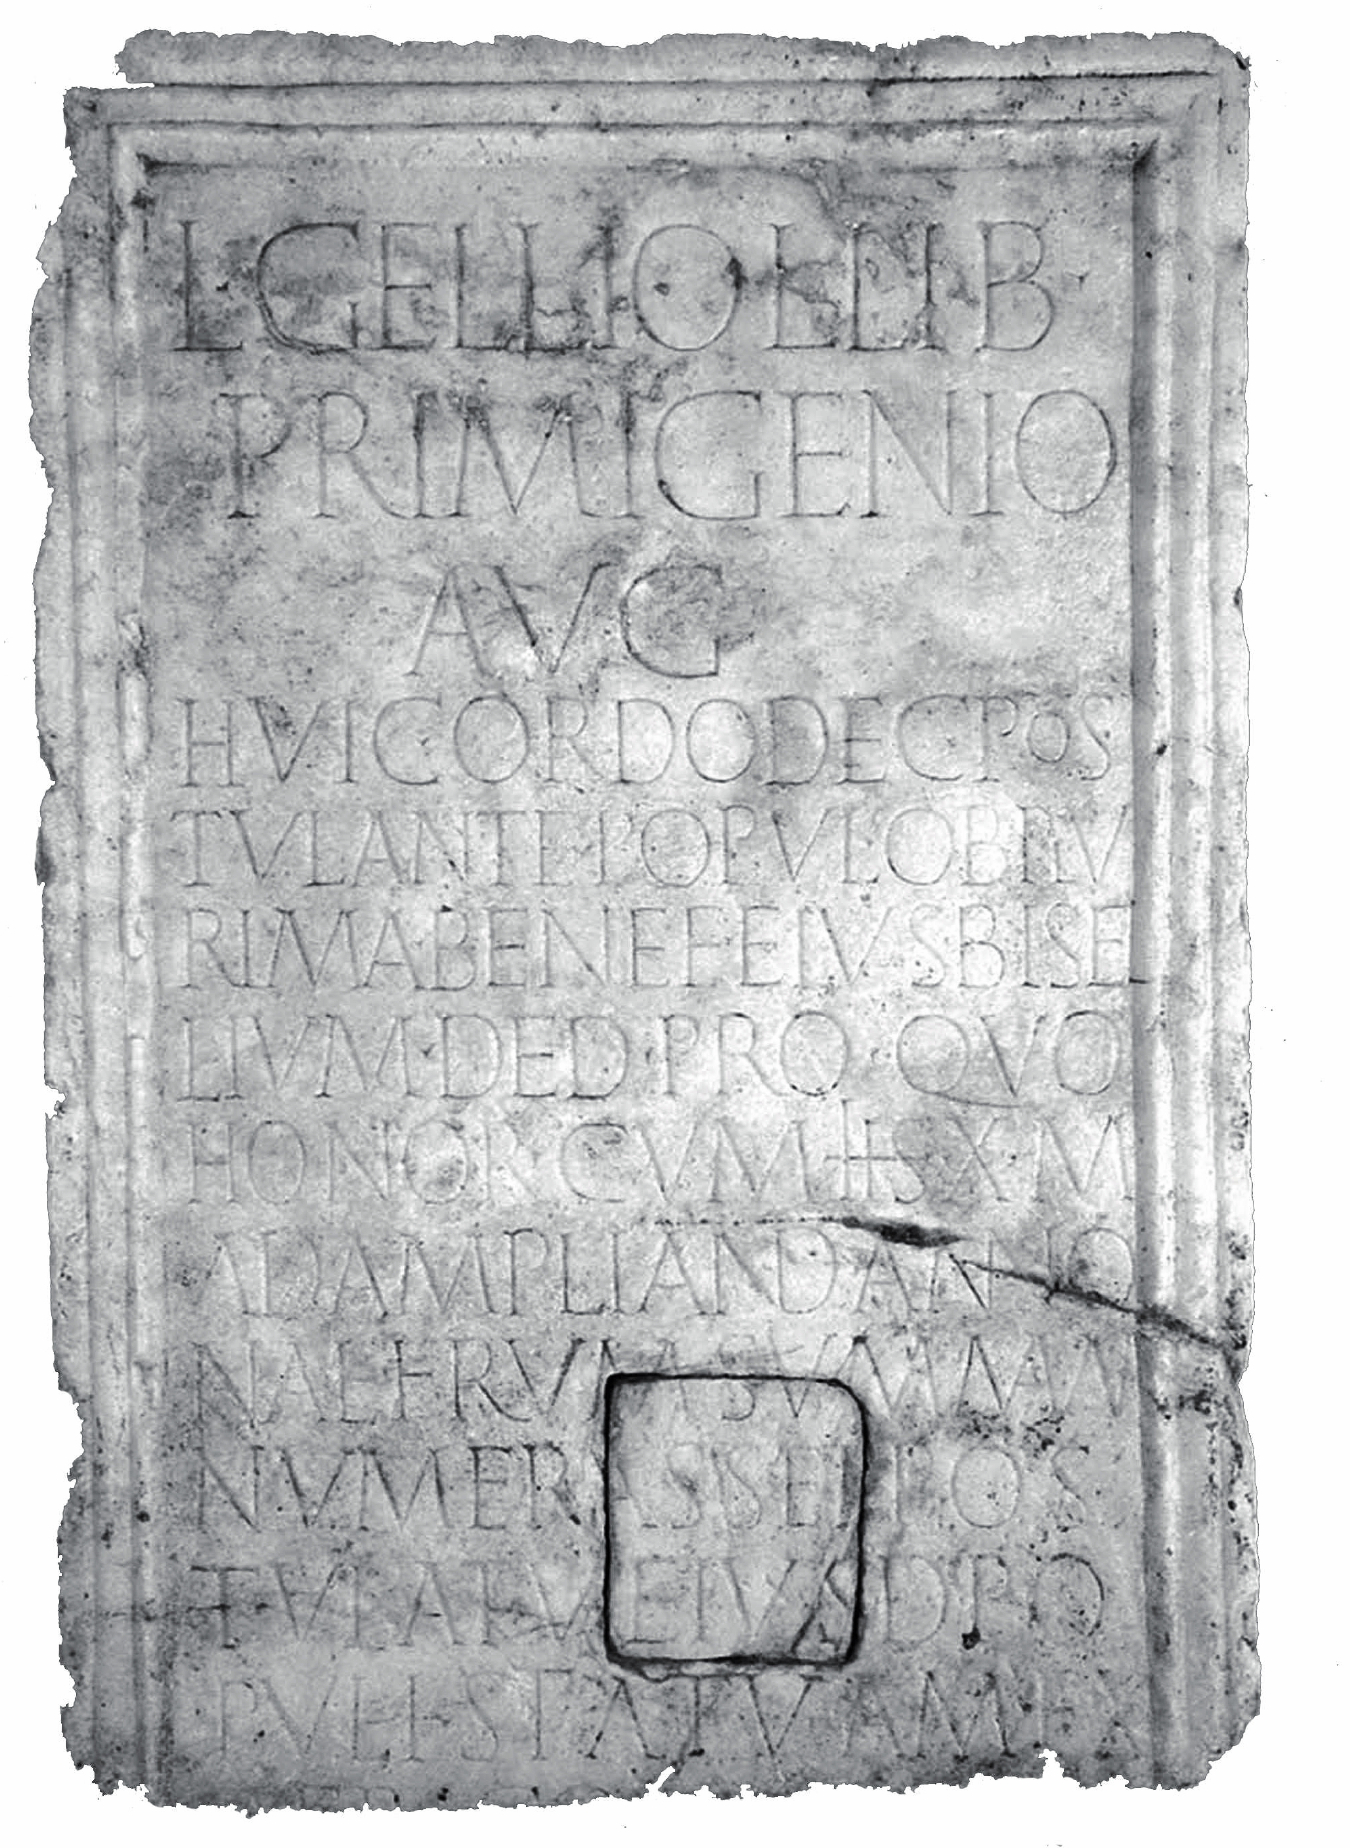 L·GELLIO L·LIB·
PRIMIGENIO
AVG
HVIC ORDO DEC POS
TVLANTE POPVL OB PLV
RIMA BENEF EIVS BISEL
LIVM·DED·PRO·QVO
HONOR CVM HS X M
AD AMPLIAND ANNO
NAE FRVM A SVMMAM
NVMERASSET POS
TVLATV EIVSD PO
PVLI STATVAM EX